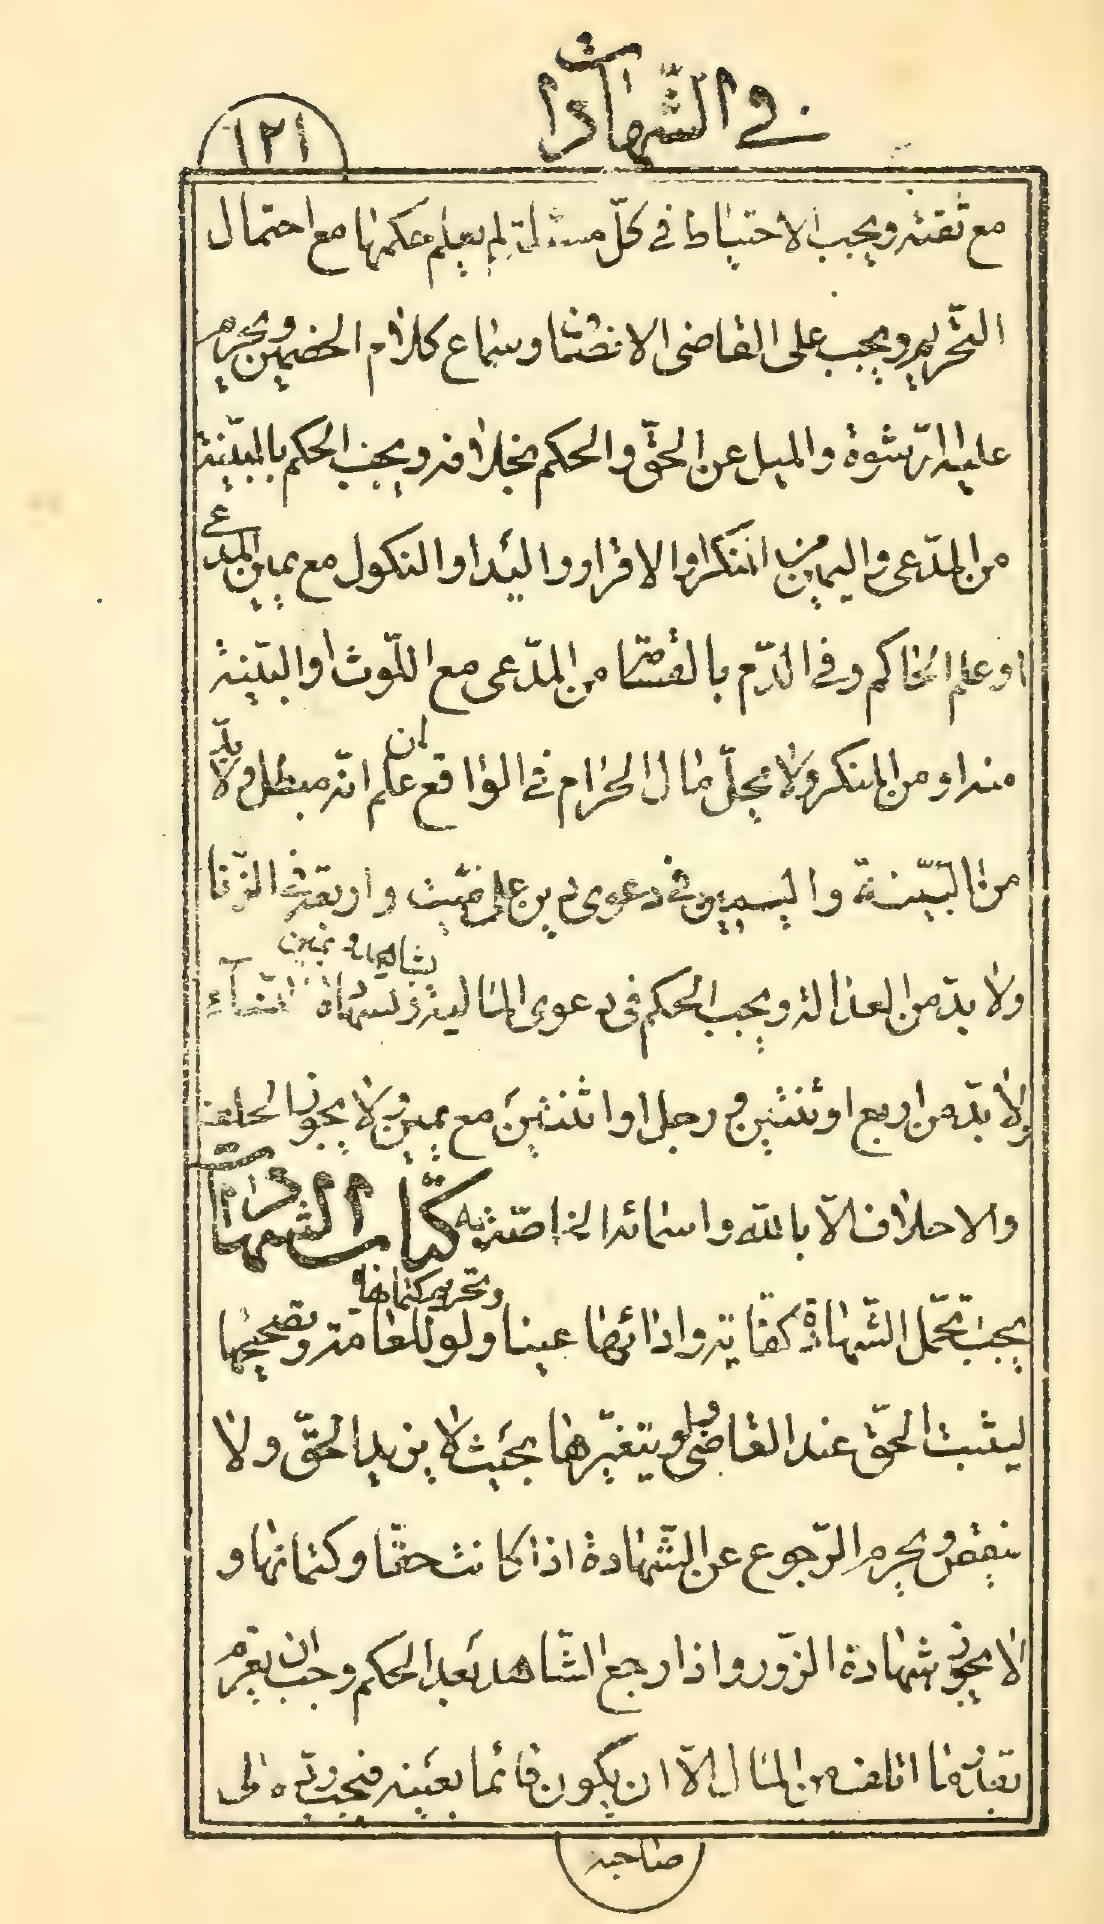 في الشهادات
١٢١
مع ثقته ويجب الاحتياط في كلّ مسئلة لم يعلم حكمها مع احتمال
التّحريم ويجب على القاضى الانصات وسماع كلام الخصمين ويحرم
عليه الرّشوة والميل عن الحقّ والحكم بخلافه ويجب الحكم بالبيّنة
من المدّعى واليمين من المنكر او الاقرار واليد او النكول مع يمين المدّعى
او علم الحاكم وفى الدّم بالقسامة من المدّعى مع اللّوث او البيّنة
منه او من المنكر ولا يحلّ مال الحرام في الواقع ان علم انّه مبطل ولا بدّ
من البيّنة واليمين في دعوى دين على ميّت واربعة في الزّنا
ولا بدّ من العدالة ويجب الحكم فى دعوى الماليّة بشاهد ويمين وشهادة النّساء
ولا بدّ من اربع او ثنتين ورجل او اثنتين مع يمين ولا يجوز الحلف
والاحلاف الّا بالله واسمائه الخاصّة به كتاب الشهادات
يجب تحمّل الشّهادة كفاية وادائها عينا ولو للعامّة وتحريم كتمانها وتصحيحها
ليثبت الحقّ عند القاضى ولو بتغيّرها بحيث لا يزيد الحقّ ولا
ينقص ويحرم الرّجوع عن الشّهادة اذا كانت حقّا وكتمانها و
لا يجوز شهادة الزّور واذا رجع الشّاهد بعد الحكم وجب ان يغرم
بقدر ما اتلف من المال الّا ان يكون قائما بعينه فيجب ردّه الى
صاحبه